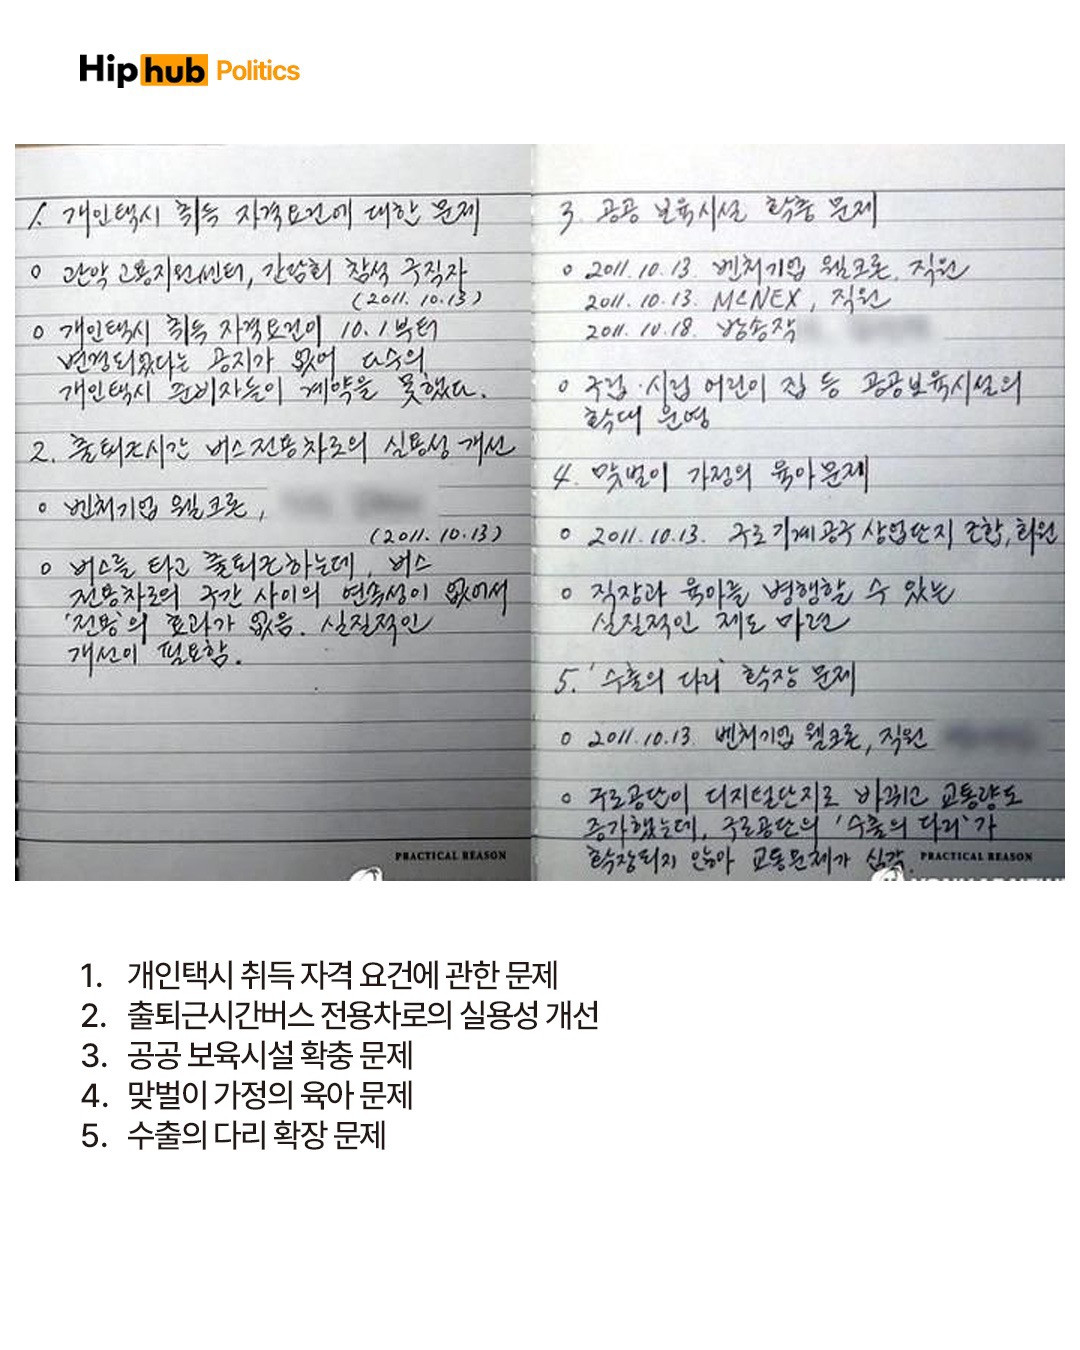 Hiphub Politics
1. 개인택시 취득 자격요건에 대한 문제
o 관악고용지원센터, 간담회 참석 구직자
(2011. 10.13)
o 개인택시 취득 자격요건이 10.1부터
변경되었다는 공지가 없어 다수의
개인택시 준비자들이 계약을 못했다.
2. 출퇴근시간 버스전용차로의 실용성 개선
o 벤처기업 웰크론,
(2011. 10.13)
o 버스를 타고 출퇴근하는데, 버스
전용차로의 구간 사이의 연속성이 없어서
'전용'의 효과가 없음. 실질적인
개선이 필요함.
PRACTICAL REASON
3. 공공 보육시설 확충 문제
o 2011.10.13. 벤처기업 웰크론, 직원
2011.10.13. McNEX, 직원
2011.10.18. 방송작
o 국립·시립 어린이 집 등 공공보육시설의
확대 운영
4. 맞벌이 가정의 육아문제
o 2011.10.13. 구로기계공구상업단지 조합, 회원
o 직장과 육아를 병행할 수 있는
실질적인 제도 마련
5. '수출의 다리' 확장 문제
o 2011.10.13. 벤처기업 웰크론, 직원
o 구로공단이 디지털단지로 바뀌고 교통량도
증가했는데, 구로공단의 '수출의 다리'가
확장되지 않아 교통문제가 심각.
PRACTICAL REASON
1. 개인택시 취득 자격 요건에 관한 문제
2. 출퇴근시간버스 전용차로의 실용성 개선
3. 공공 보육시설 확충 문제
4. 맞벌이 가정의 육아 문제
5. 수출의 다리 확장 문제